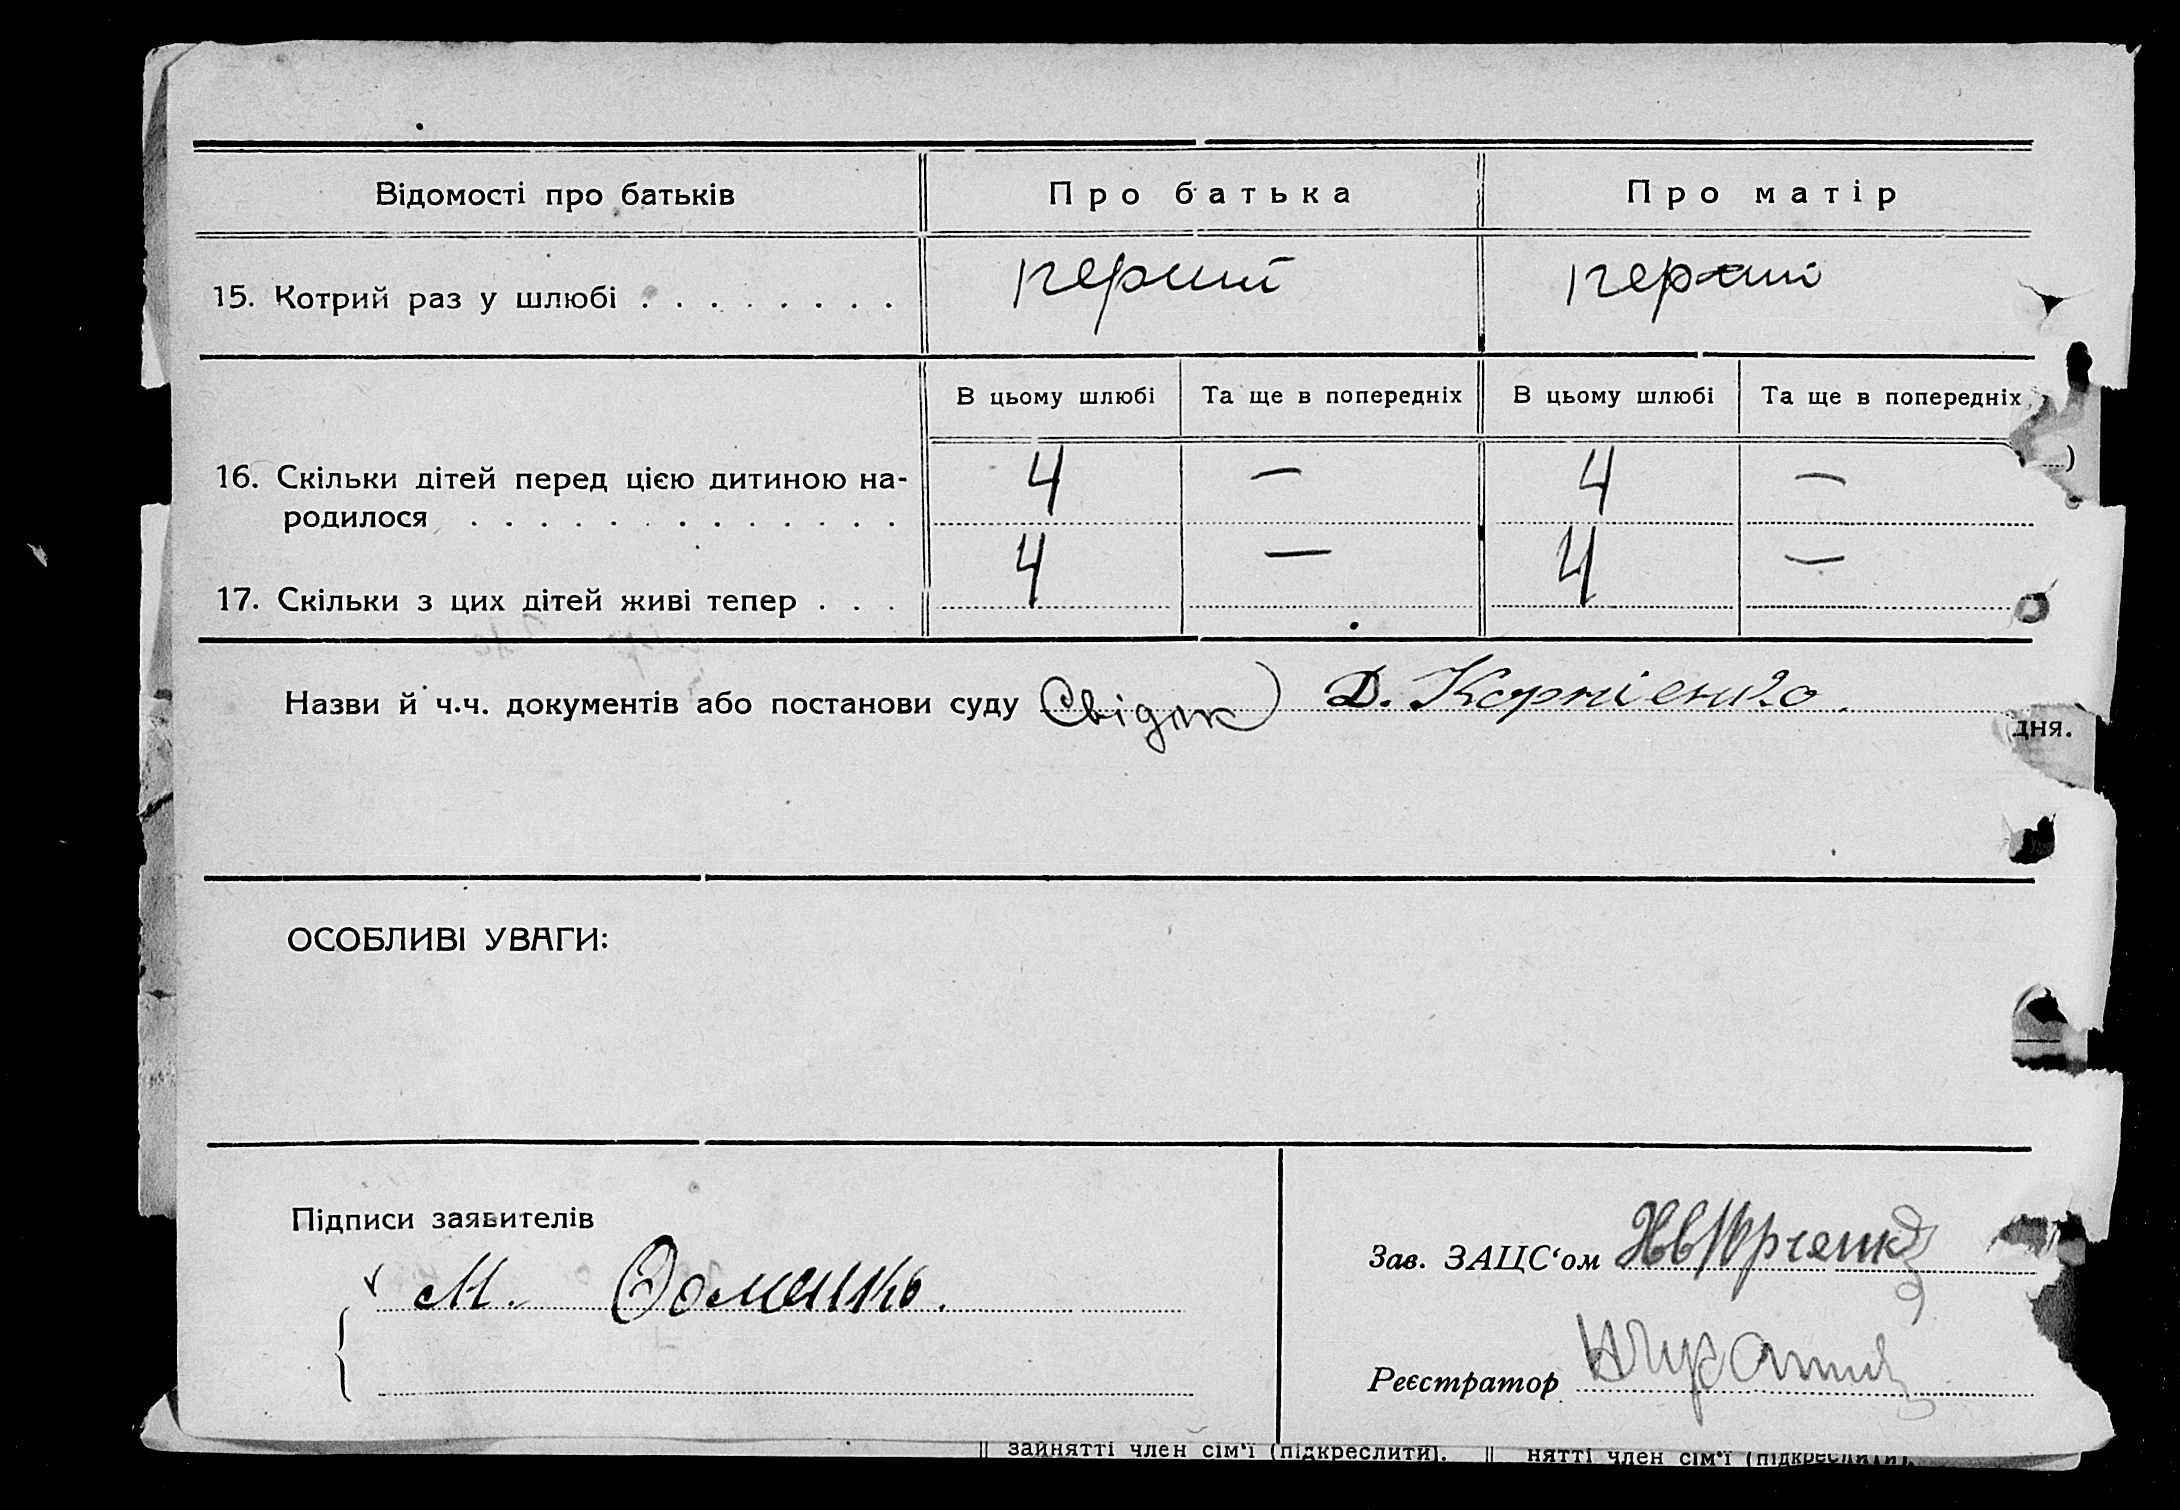 Відомості про батьків Про батька Про матір
15. Котрий раз у шлюбі . . . . . . . . перший перший
В цьому шлюбі Та ще в попередніх В цьому шлюбі Та ще в попередніх
16. Скільки дітей перед цією дитиною на- 4 — 4 —
родилося . . . . . . . . . . . . .
17. Скільки з цих дітей живі тепер . . . 4 — 4 —
Назви й ч.ч. документів або постанови суду (Свідок) Д. Корнієнко.
дня.
ОСОБЛИВІ УВАГИ:
Підписи заявителів
М. Доменко.
Зав. ЗАЦС‘ом Юрченко
Реєстратор
зайнятті член сім‘ї (підкреслити). нятті член сім‘ї (підкреслити).